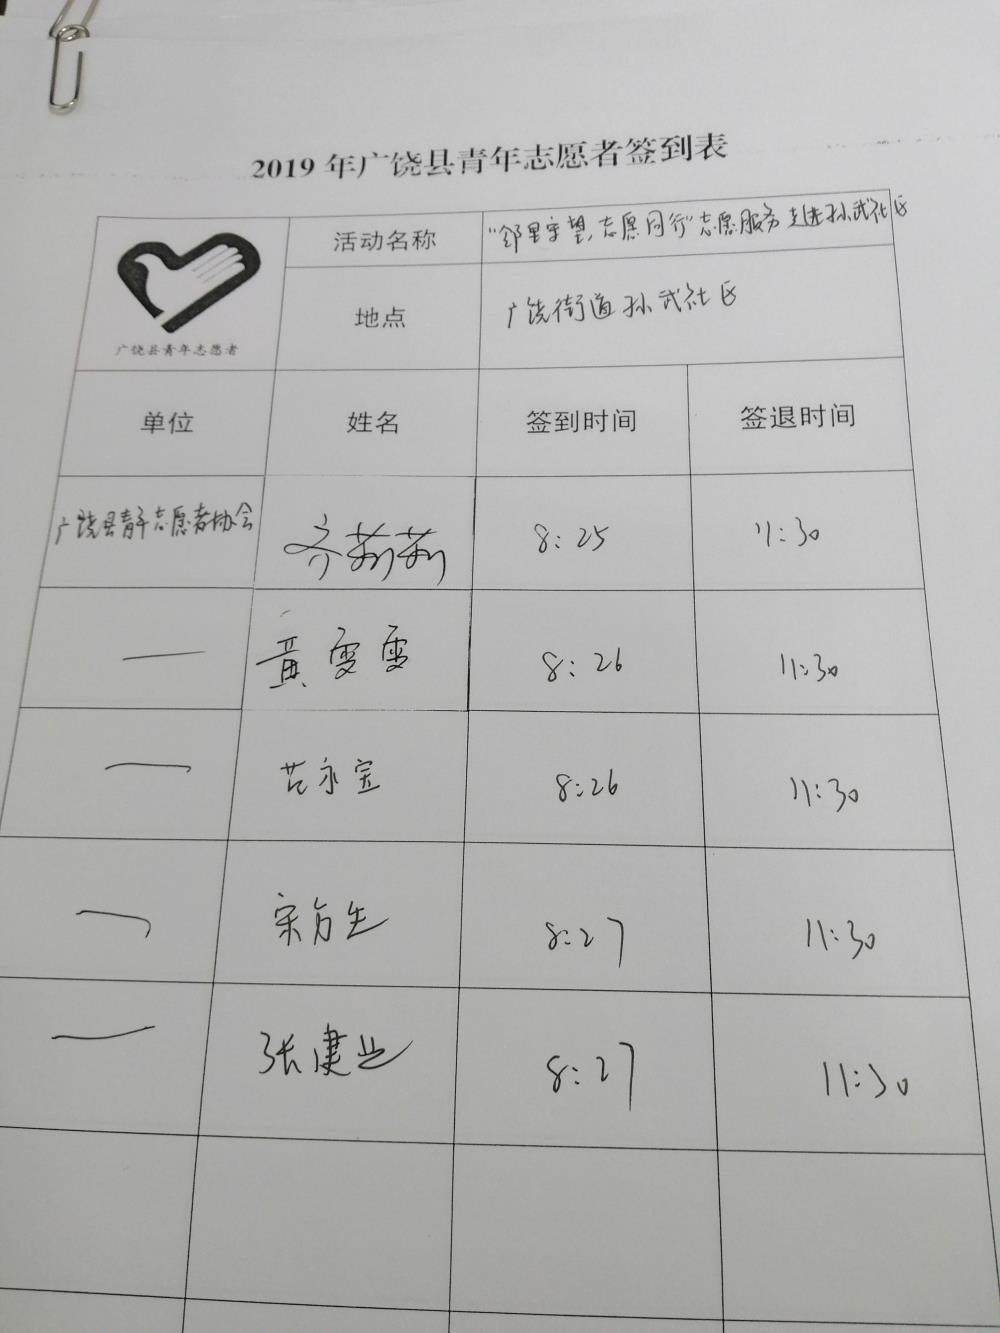 2019年广饶县青年志愿者签到表
广饶县青年志愿者
活动名称 "邻里守望,志愿同行"志愿服务走进孙武社区
地点 广饶街道孙武社区
单位 姓名 签到时间 签退时间
广饶县青年志愿者协会 齐莉莉 8:25 11:30
— 黄雯雯 8:26 11:30
— 范永宝 8:26 11:30
— 宋方生 8:27 11:30
— 张建业 8:27 11:30